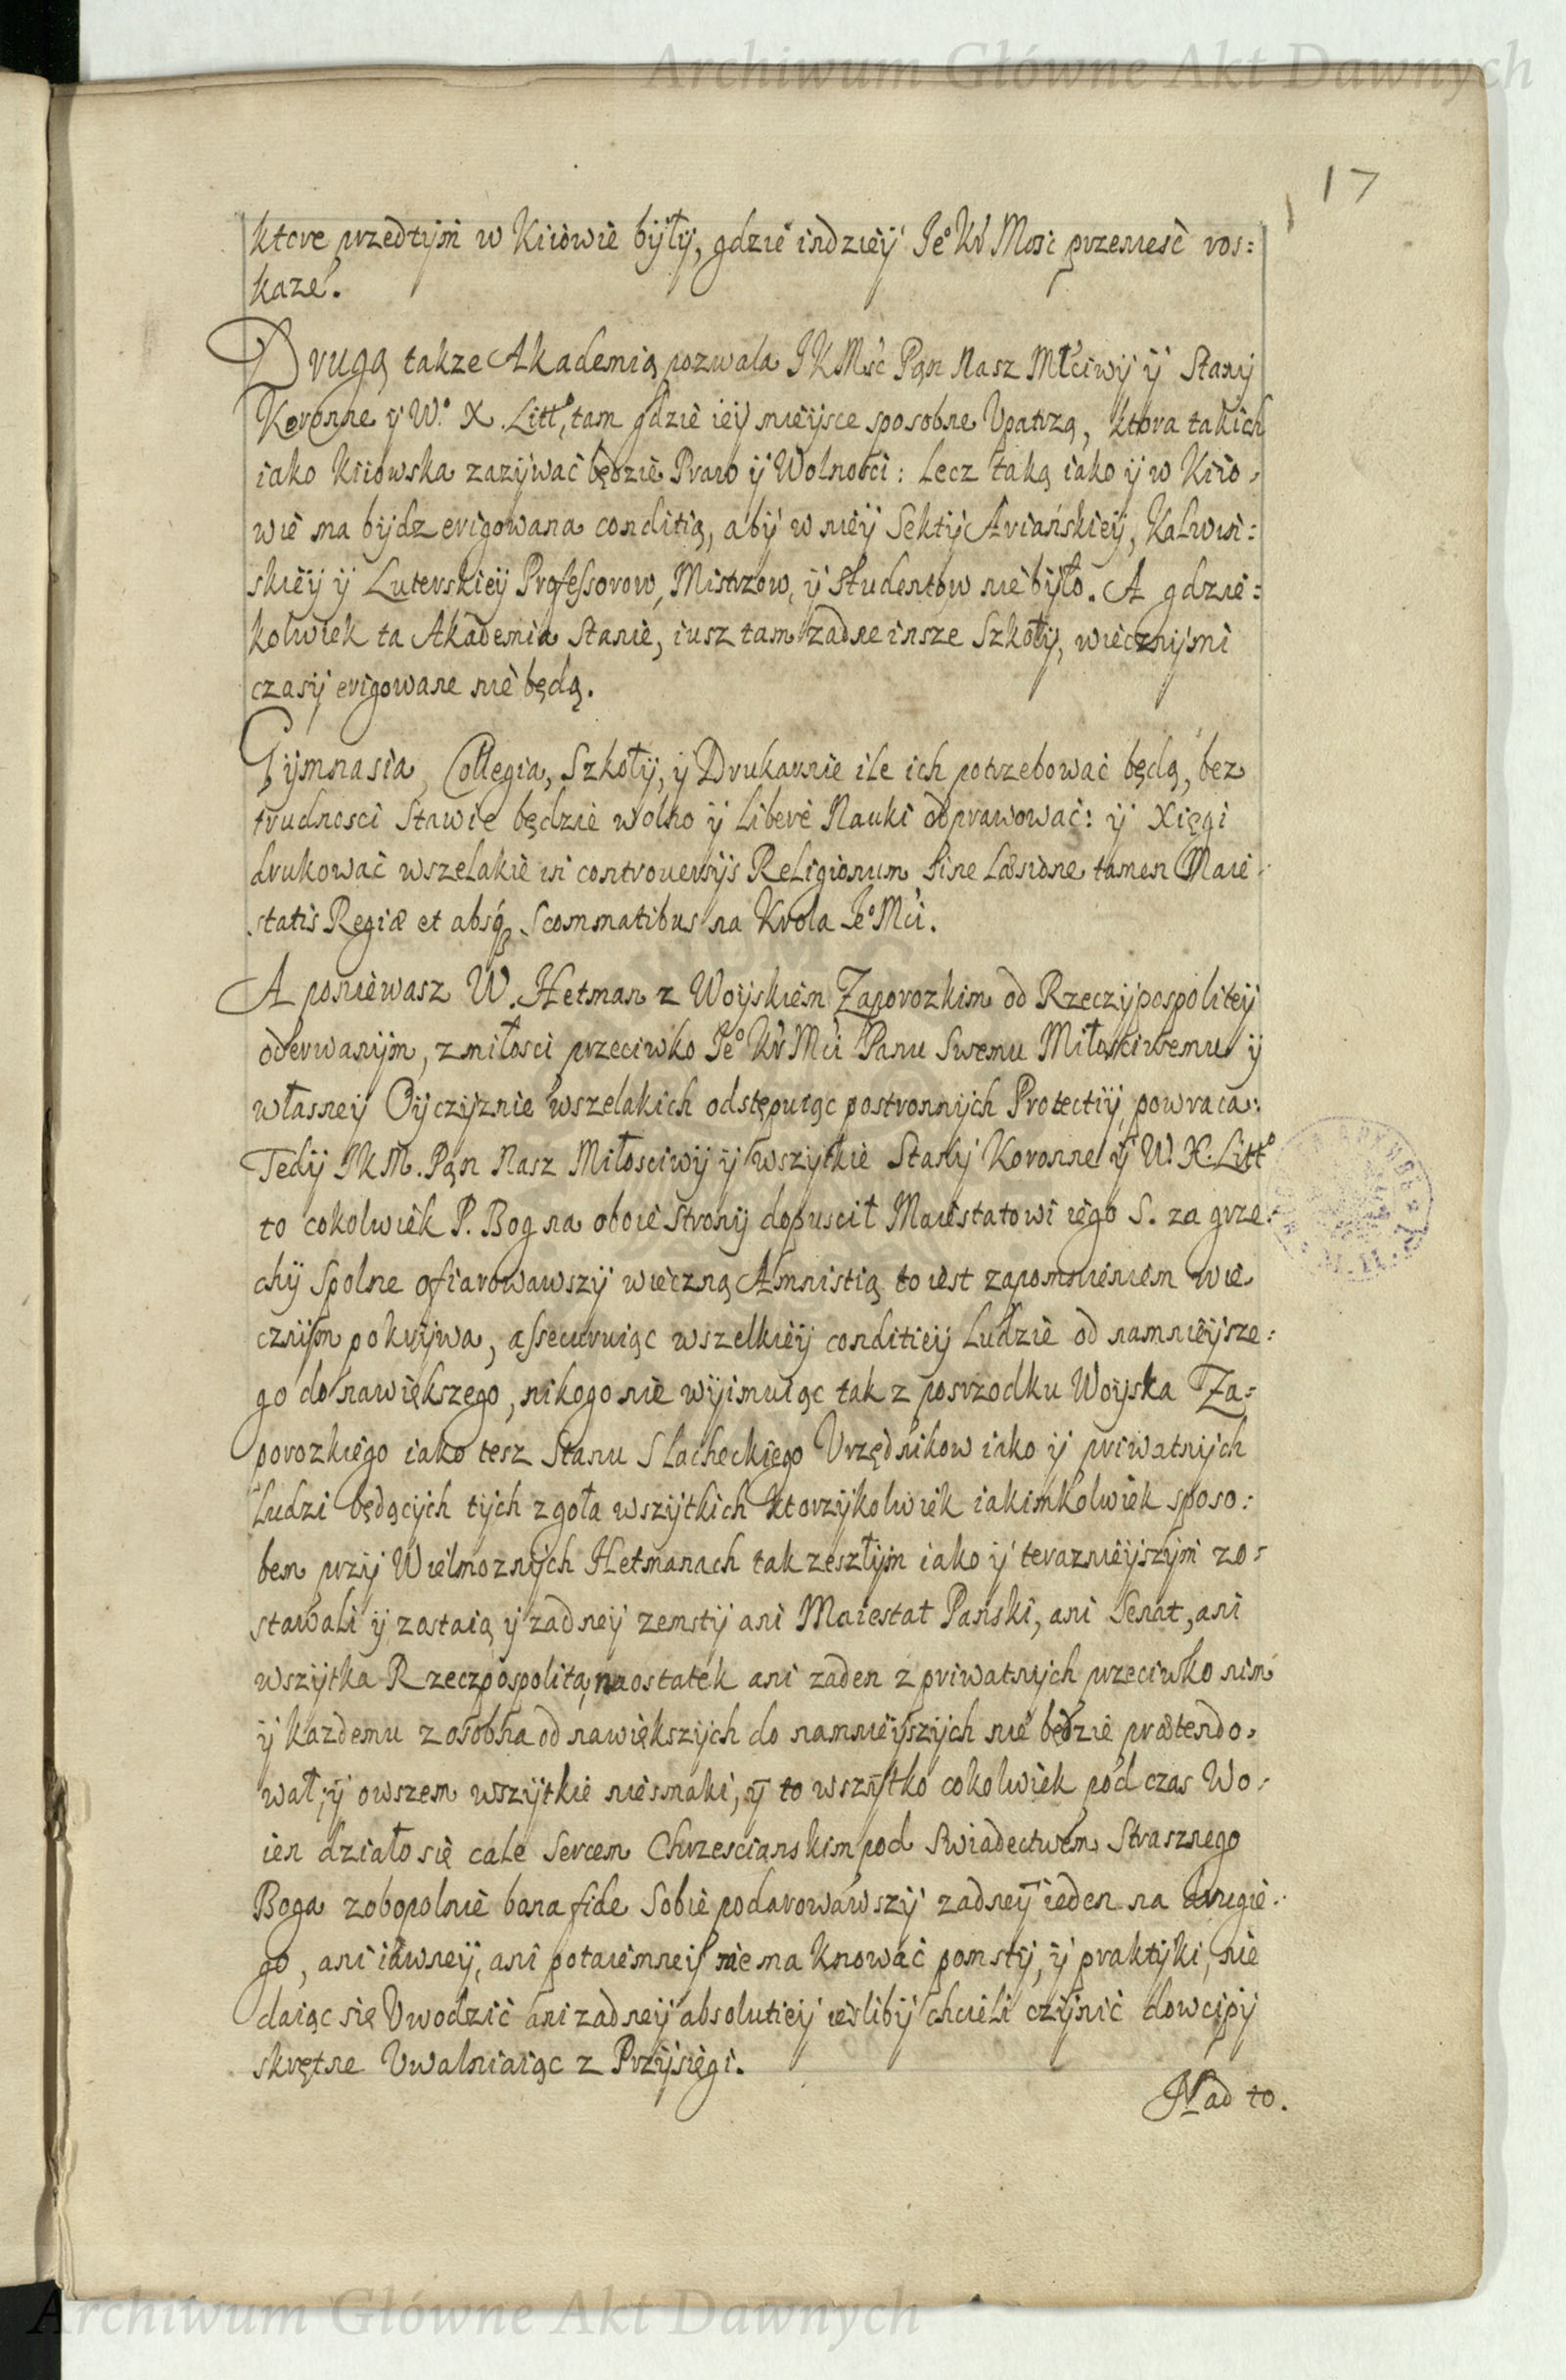 Archiwum Główne Akt Dawnych
17
ktore przedtym w Kiiowie były, gdzie indziey Je° Kr Mosc przeniesc ros:
kaze.
Drugą takze Akademią pozwala JKMsc Pan Nasz Młciwy y Stany
Koronne y W.° X. Litt°, tam gdzie iey mieysce sposobne Upatrzą, ktora takich
iako Kiiowska zazywac będzie Praw y Wolnosci: Lecz taką iako y w Kiio-
wie ma bydz erigowana conditią, aby w niey Sekty Ariańskiey, Kalwin:
skiey y Luterskiey Professorow, Mistrzow, y Studentow nie było. A gdzie:
kolwiek ta Akademia Stanie, iusz tam zadne insze Szkoły, wiecznymi
czasy erigowane nie będą.
Gymnasia, Collegia, Szkoły, y Drukarnie ile ich potrzebowac będą, bez
trudnosci Stawic będzie wolno y Libere Nauki odprawowac: y Xięgi
drukowac wszelakie in controuersijs Religionum, sine Læsione tamen Maie-
statis Regiæ et absq Scommatibus na Krola Je°Mci.
A poniewasz W. Hetman z Woyskiem Zaporozkim od Rzeczypospolitey
oderwanym, z miłosci przeciwko Je° Kr Mci Panu Swemu Miłosciwemu y
własney Oyczyznie wszelakich odstępuiąc postronnych Protectiy powraca:
Tedy JKM. Pan Nasz Miłosciwy y wszytkie Stany Koronne y W. X. Litt°
to cokolwiek P. Bog na oboie Strony dopuscił Maiestatowi iego S. za grze-
chy Spolne ofiarowawszy wieczną Amnistią to iest zapomnieniem wie
cznym pokrywa, assecuruiąc wszelkiey conditiey Ludzie od namnieysze:
go do nawiększego, nikogo nie wyimuiąc tak z posrzodku Woyska Za-
porozkiego iako tesz Stanu Slacheckiego Vrzędnikow iako y priwatnych
Ludzi będących tych zgoła wszytkich ktorzykolwiek iakimkolwiek sposo:
bem przy Wielmoznych Hetmanach tak zeszłym iako y teraznieyszym zo-
stawali y zostaią y zadney zemsty ani Maiestat Panski, ani Senat, ani
wszytka Rzeczpospolita, naostatek ani zaden z priwatnych przeciwko nim
y kazdemu z osobna od nawiększych do namnieyszych nie będzie prætendo-
wał, y owszem wszytkie niesmaki, y to wszytko cokolwiek pod czas Wo-
ien działo się cale Sercem Chrzescianskim pod Swiadectwem Strasznego
Boga zobopolnie bona fide Sobie podarowawszy zadney ieden na drugie-
go, ani iawney, ani potaiemney nie ma knowac pomsty, y praktyki, nie
daiąc się Uwodzic ani zadney absolutiey iesliby chcieli czynic dowcipy
skrętne Uwalniaiąc z Przysięgi.
Nad to.
Archiwum Główne Akt Dawnych